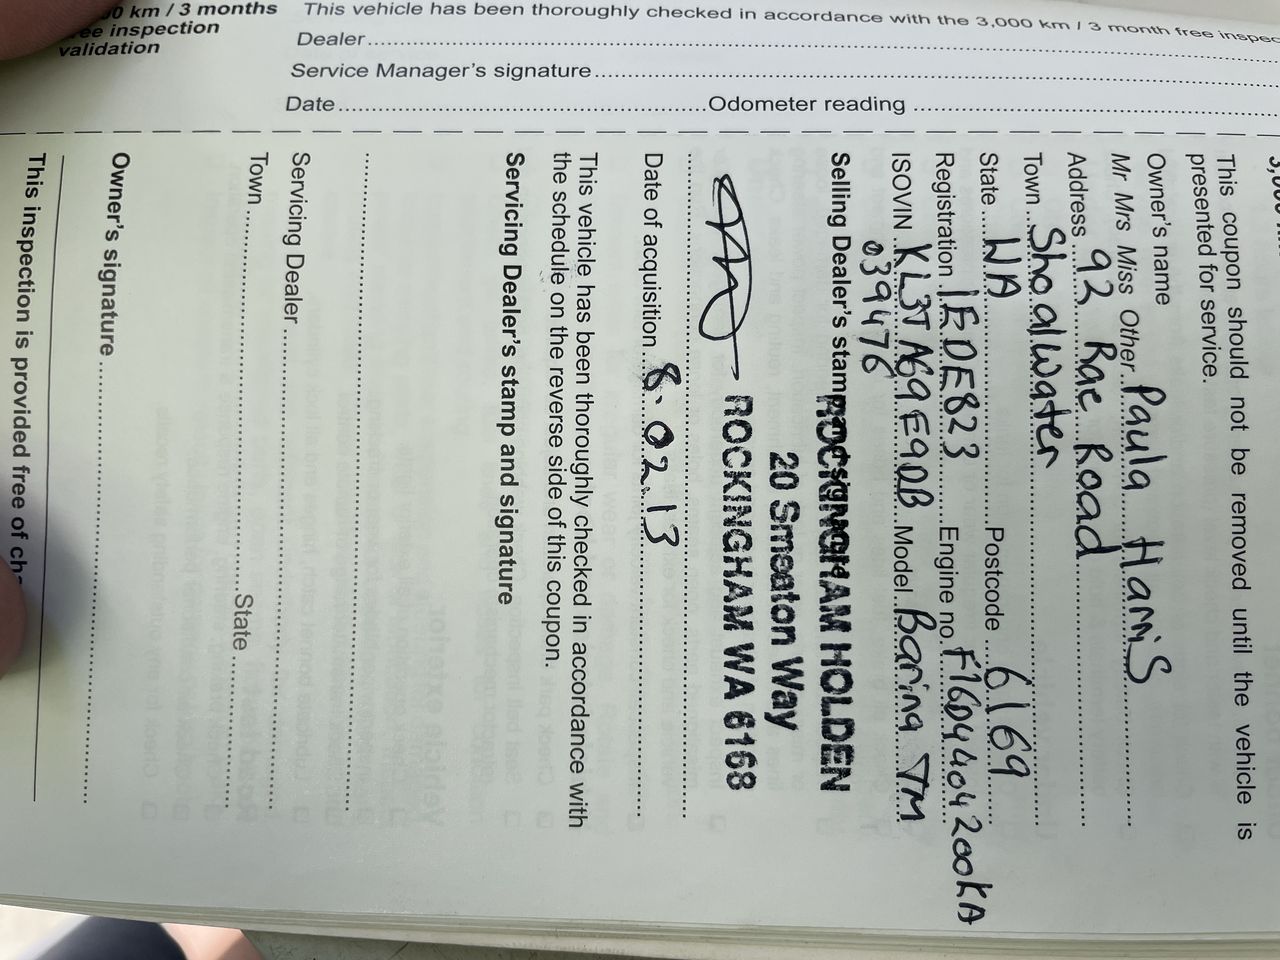 0 km / 3 months
ee inspection
validation
This vehicle has been thoroughly checked in accordance with the 3,000 km / 3 month free inspec
Dealer
Service Manager's signature
Date Odometer reading
This coupon should not be removed until the vehicle is
presented for service.
Owner's name
Mr Mrs Miss Other Paula Harris
Address 92 Rae Road
Town Shoalwater
State WA Postcode 6169
Registration 1EDE823 Engine no. F16D4404200KA
ISOVIN KL3TA69E9DB Model Barina TM
039476
Selling Dealer's stamp and signature
ROCKINGHAM HOLDEN
20 Smeaton Way
ROCKINGHAM WA 6168
Date of acquisition 8.02.13
This vehicle has been thoroughly checked in accordance with
the schedule on the reverse side of this coupon.
Servicing Dealer's stamp and signature
Servicing Dealer
Town State
Owner's signature
This inspection is provided free of cha